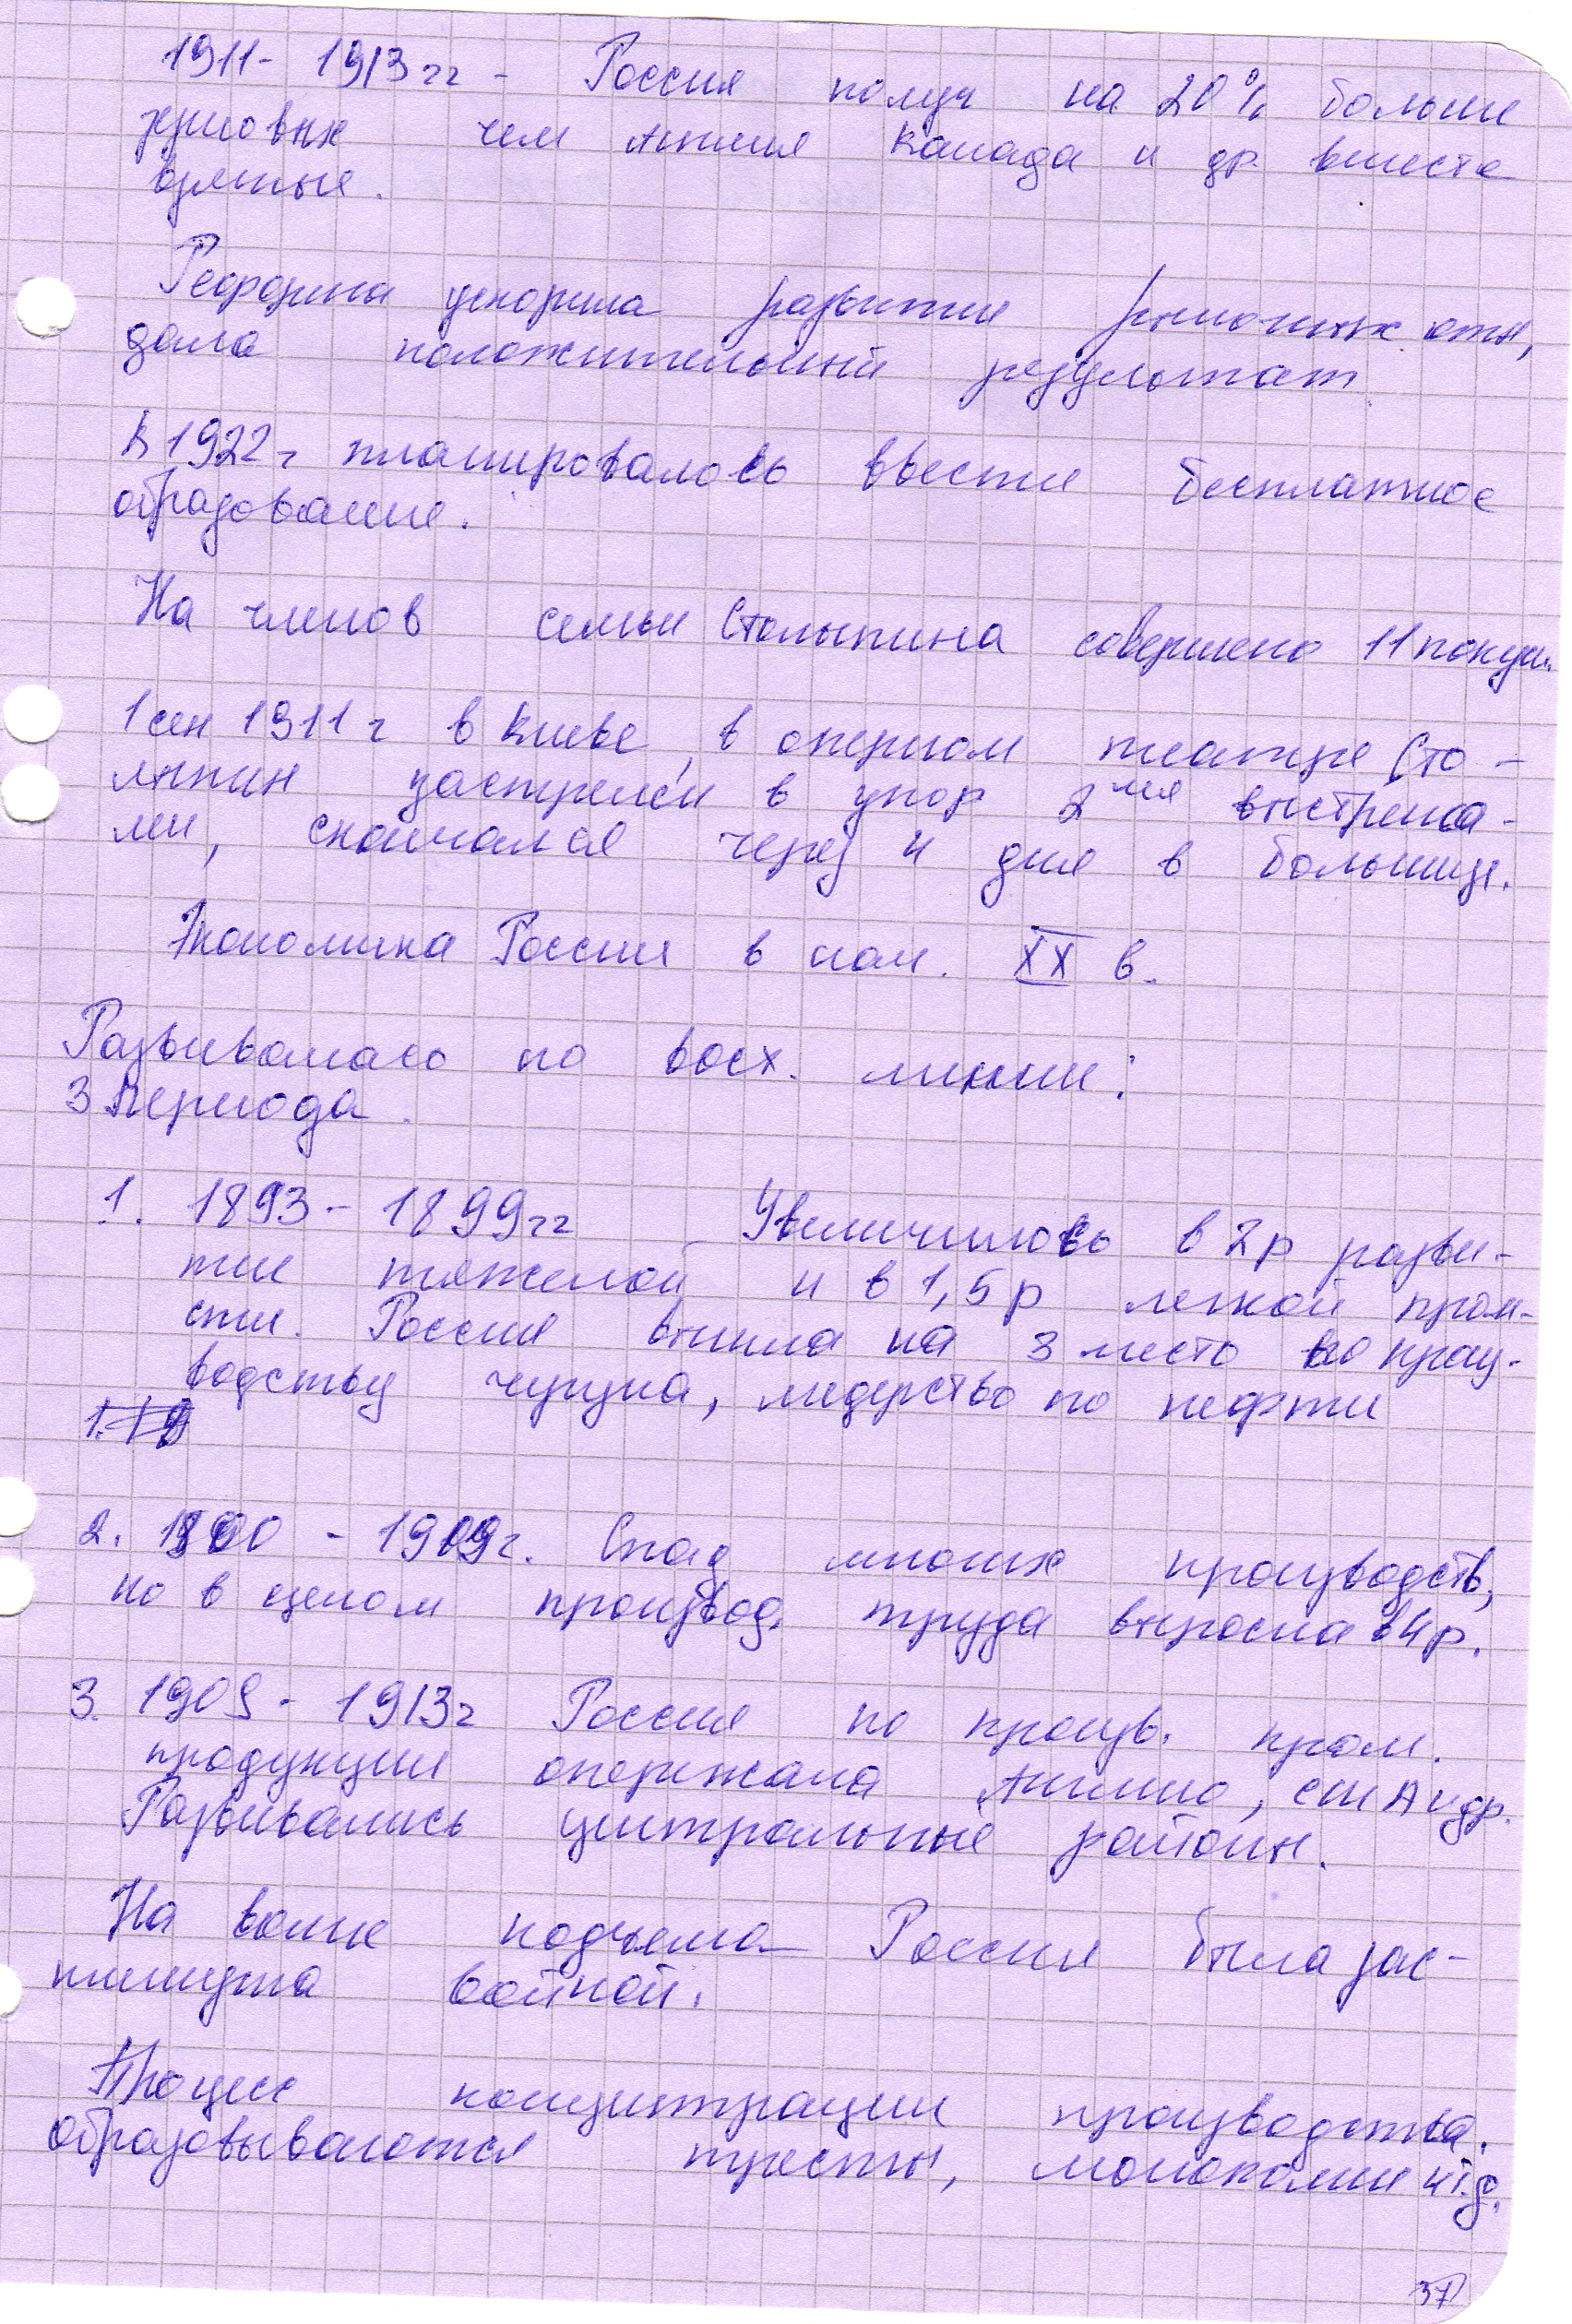 1911- 1913гг - Россия получ на 20% больше
зерновых чем Англия Канада и др. вместе
взятые.
Реформа ускорила развитие рыночных отн,
дала положительный результат.
К 1922г планировалось ввести бесплатное
образование.
На членов семьи Столыпина совершено 11 покуш.
1 сен 1911г в Киеве, в оперном театре Сто-
лыпин застрелен в упор 2мя выстрела-
ми, скончался через 4 дня в больнице.
Экономика России в нач. XX в.
Развивалась по восх. линии:
3 периода.
1. 1893 - 1899гг - Увеличилось в 2р разви-
тие тяжелой и в 1,5р легкой пром-
сти. Россия вышла на 3 место по произ-
водству чугуна, лидерство по нефти
2. 1900 - 1909г. Спад многих производств,
но в целом производ. труда выросла в 4р.
3. 1909 - 1913г Россия по произв. пром.
продукции опережала Англию, США и др.
Развивались центральные районы.
На волне подъема Россия была зас-
тигнута войной.
Процесс концентрации производства.
Образовываются тресты, монополии и т.д.
37